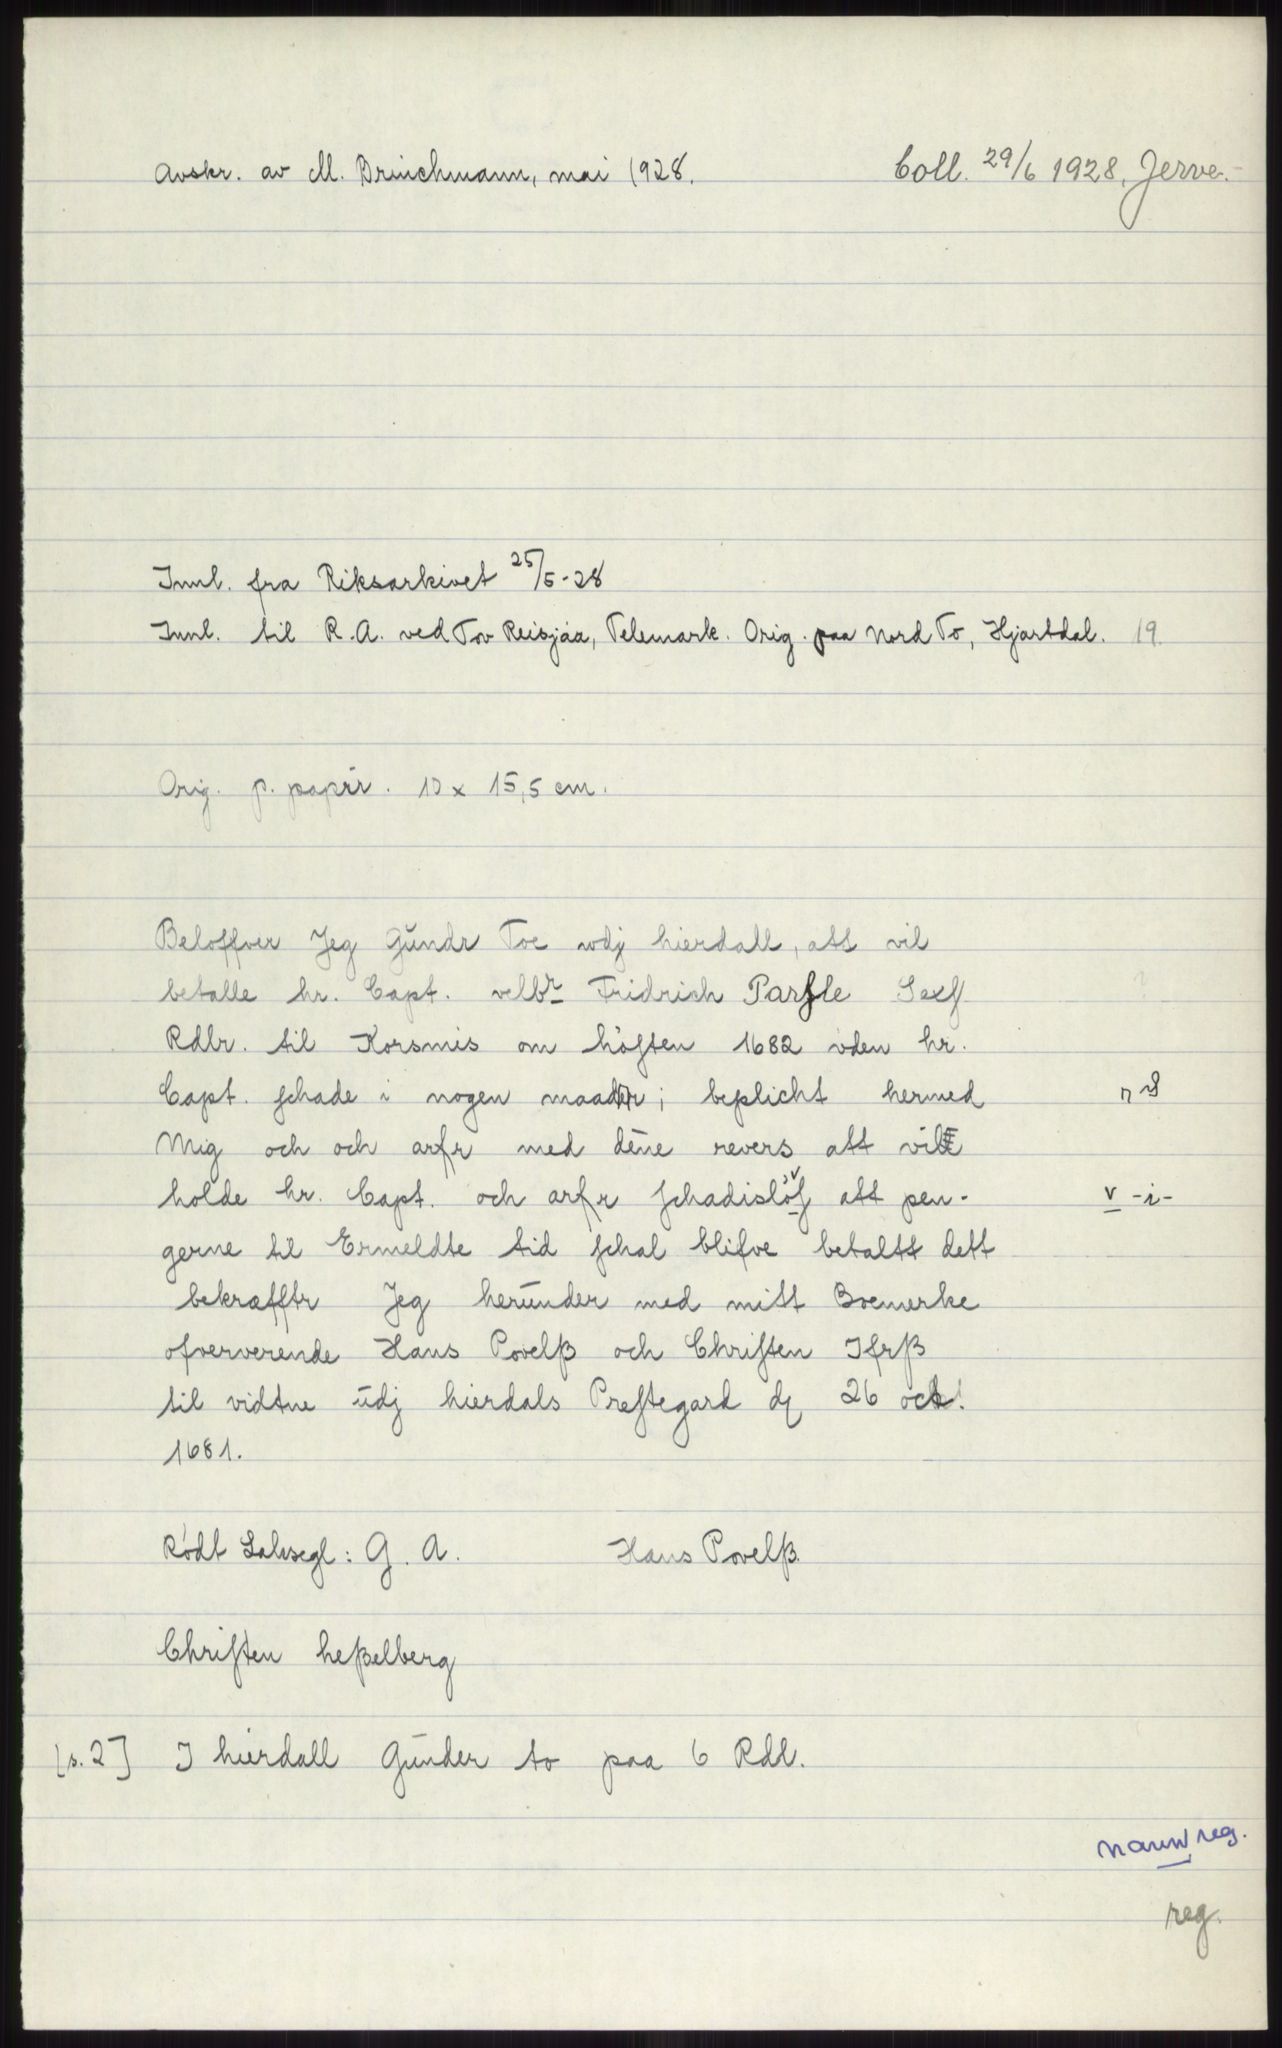 Avskr. av M. Brinchmann, mai 1928. Coll. 29/6 1928, Jerve.-
Innl. fra Riksarkivet 25/5-28
Innl. til R.A. ved Tov Reisjaa, Telemark. Orig. paa Nord To, Hjartdal. 19
Orig. p. papir. 10 x 15,5 cm.
Beloffver Jeg Gŭndr Toe wdj hierdall, att vil
betalle hr. Capt. velbr Fridrich Parsle Sexs ?
Rdlr. til Korsmis om høsten 1682 vden hr.
Capt. schade i nogen maader; beplicht hermed
Mig och och arfr med dēne revers att vile
holde hr. Capt. och arfr schadisløs att pen- v -i-
gerne til Ermeldte tid schal blifve betaltt dett
bekræfftr Jeg herŭnder med mitt Boemerke
ofververende Hans Povelß och Christen Ifrß
til vidtne ŭdj hierdals Prestegard dȩ 26 oct.
1681.
Rødt Laksegl: G. A. Hans Povelß.
Christen heßelberg
[s. 2] I hierdall Gŭnder to paa 6 Rdl.
navnreg.
reg.